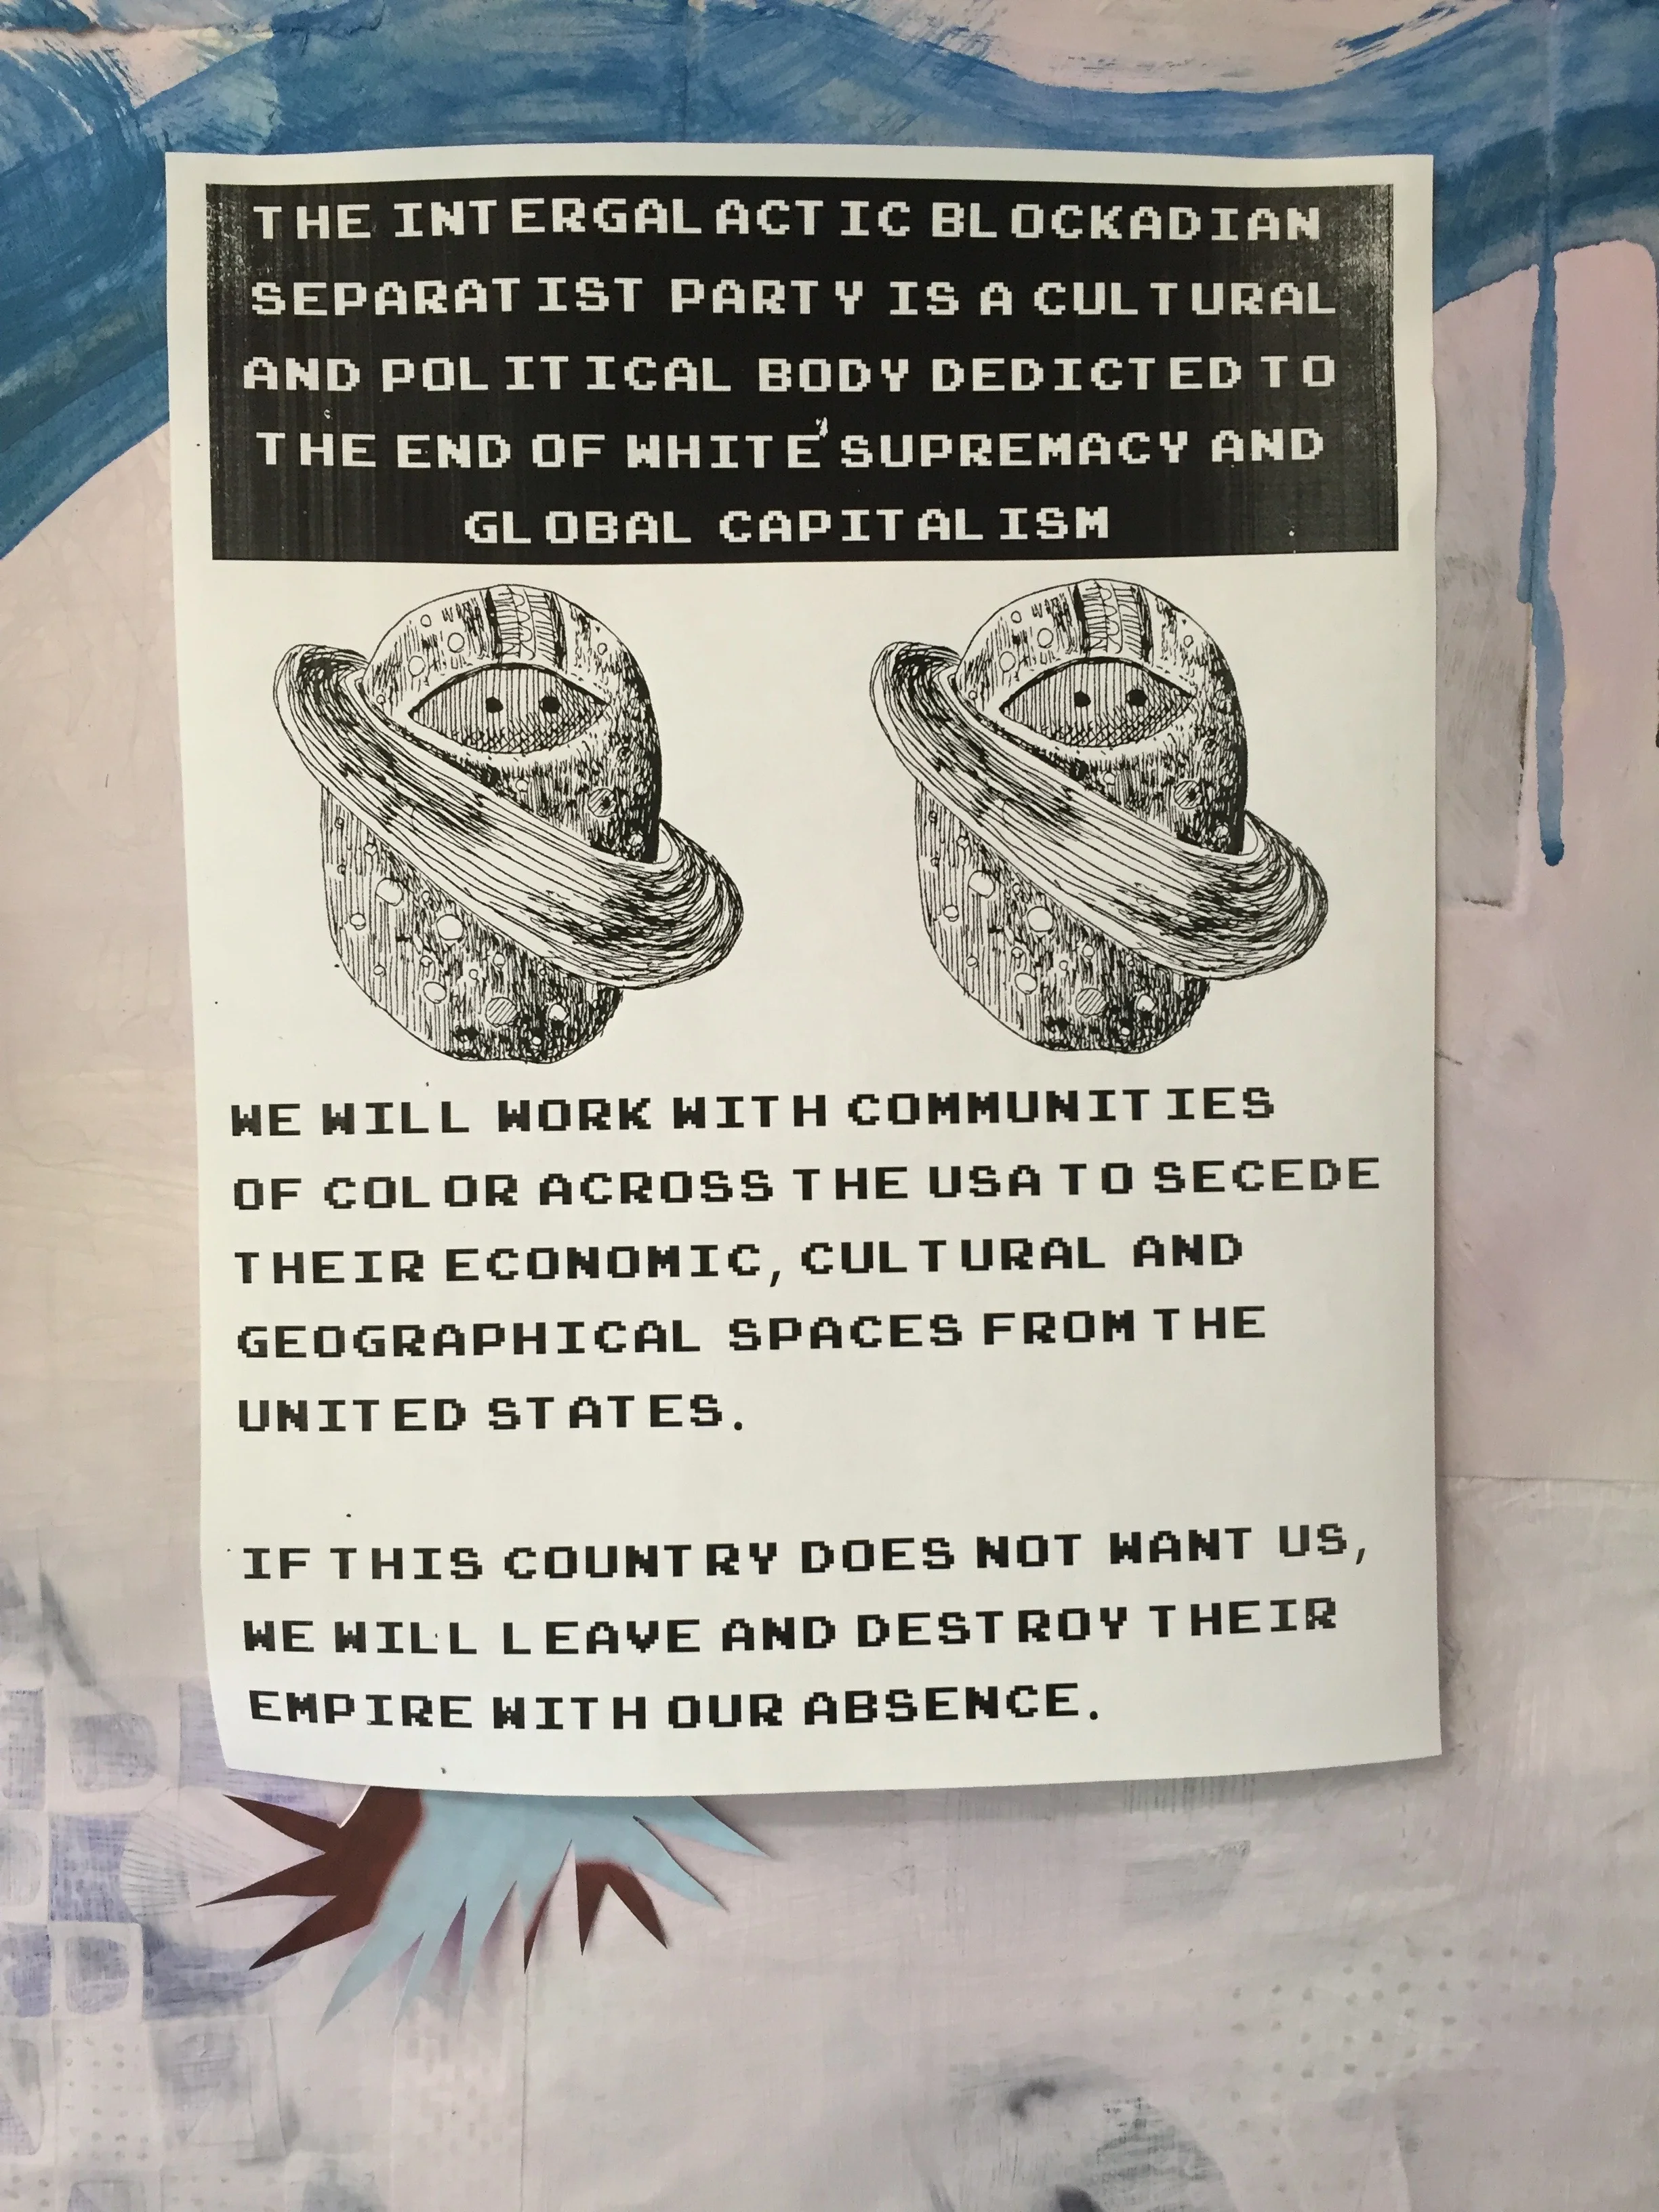 THE INTERGALACTIC BLOCKADIAN
SEPARATIST PARTY IS A CULTURAL
AND POLITICAL BODY DEDICTED TO
THE END OF WHITE SUPREMACY AND
GLOBAL CAPITALISM
WE WILL WORK WITH COMMUNITIES
OF COLOR ACROSS THE USA TO SECEDE
THEIR ECONOMIC, CULTURAL AND
GEOGRAPHICAL SPACES FROM THE
UNITED STATES.
IF THIS COUNTRY DOES NOT WANT US,
WE WILL LEAVE AND DESTROY THEIR
EMPIRE WITH OUR ABSENCE.